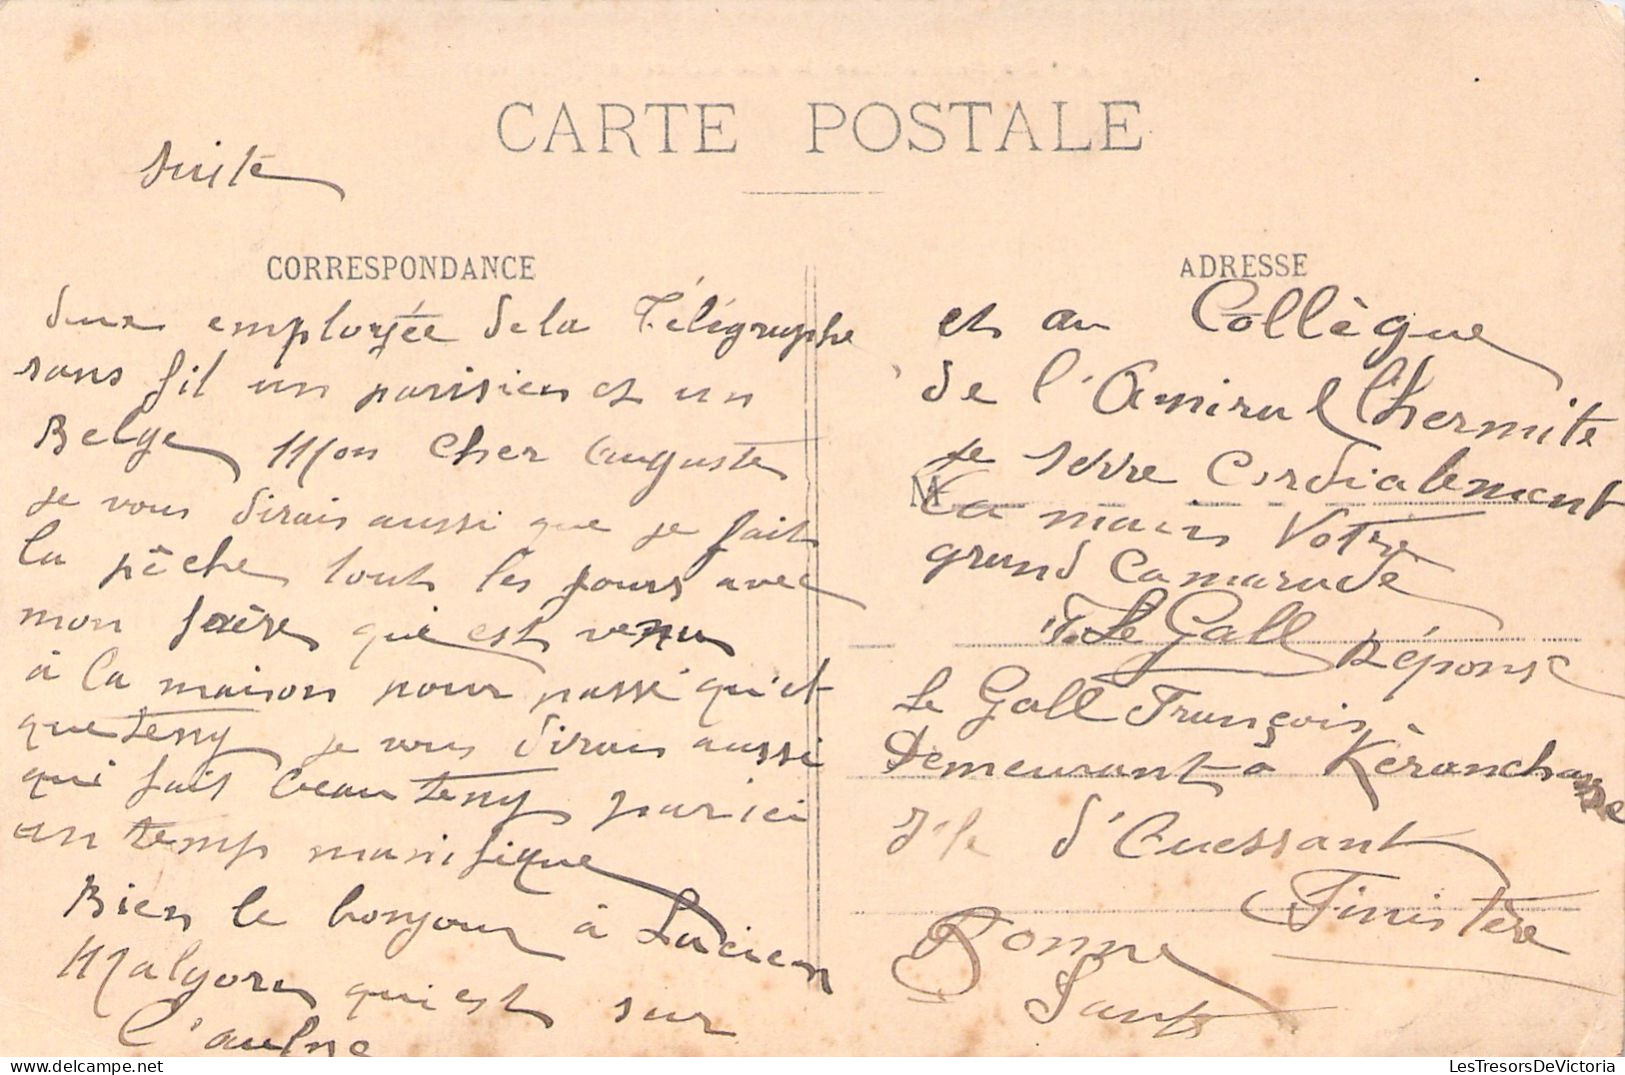 CARTE POSTALE
suite
CORRESPONDANCE
ADRESSE
deux employée de la Télégraphe
sans fil un parisien et un
Belge Mon Cher Auguste
je vous dirais aussi que je fait
la pêche tout les jours avec
mon frère qui est venu
à la maison pour passé
que je vous dirais aussi
qui fait beau temp par ici
un temp manifique
Bien le bonjour à Lucien
Malgorn qui est sur
l'aulne
et au Collègue
de l'Amiral l'hermite
je serre Cordialement
La main Votre
grand Camarade
F. Le Gall Réponse
Le Gall François
Demeurant à Kéranchas
Ile d'Ouessant
Finistère
Bonne
Santé
LesTresorsDeVictoria